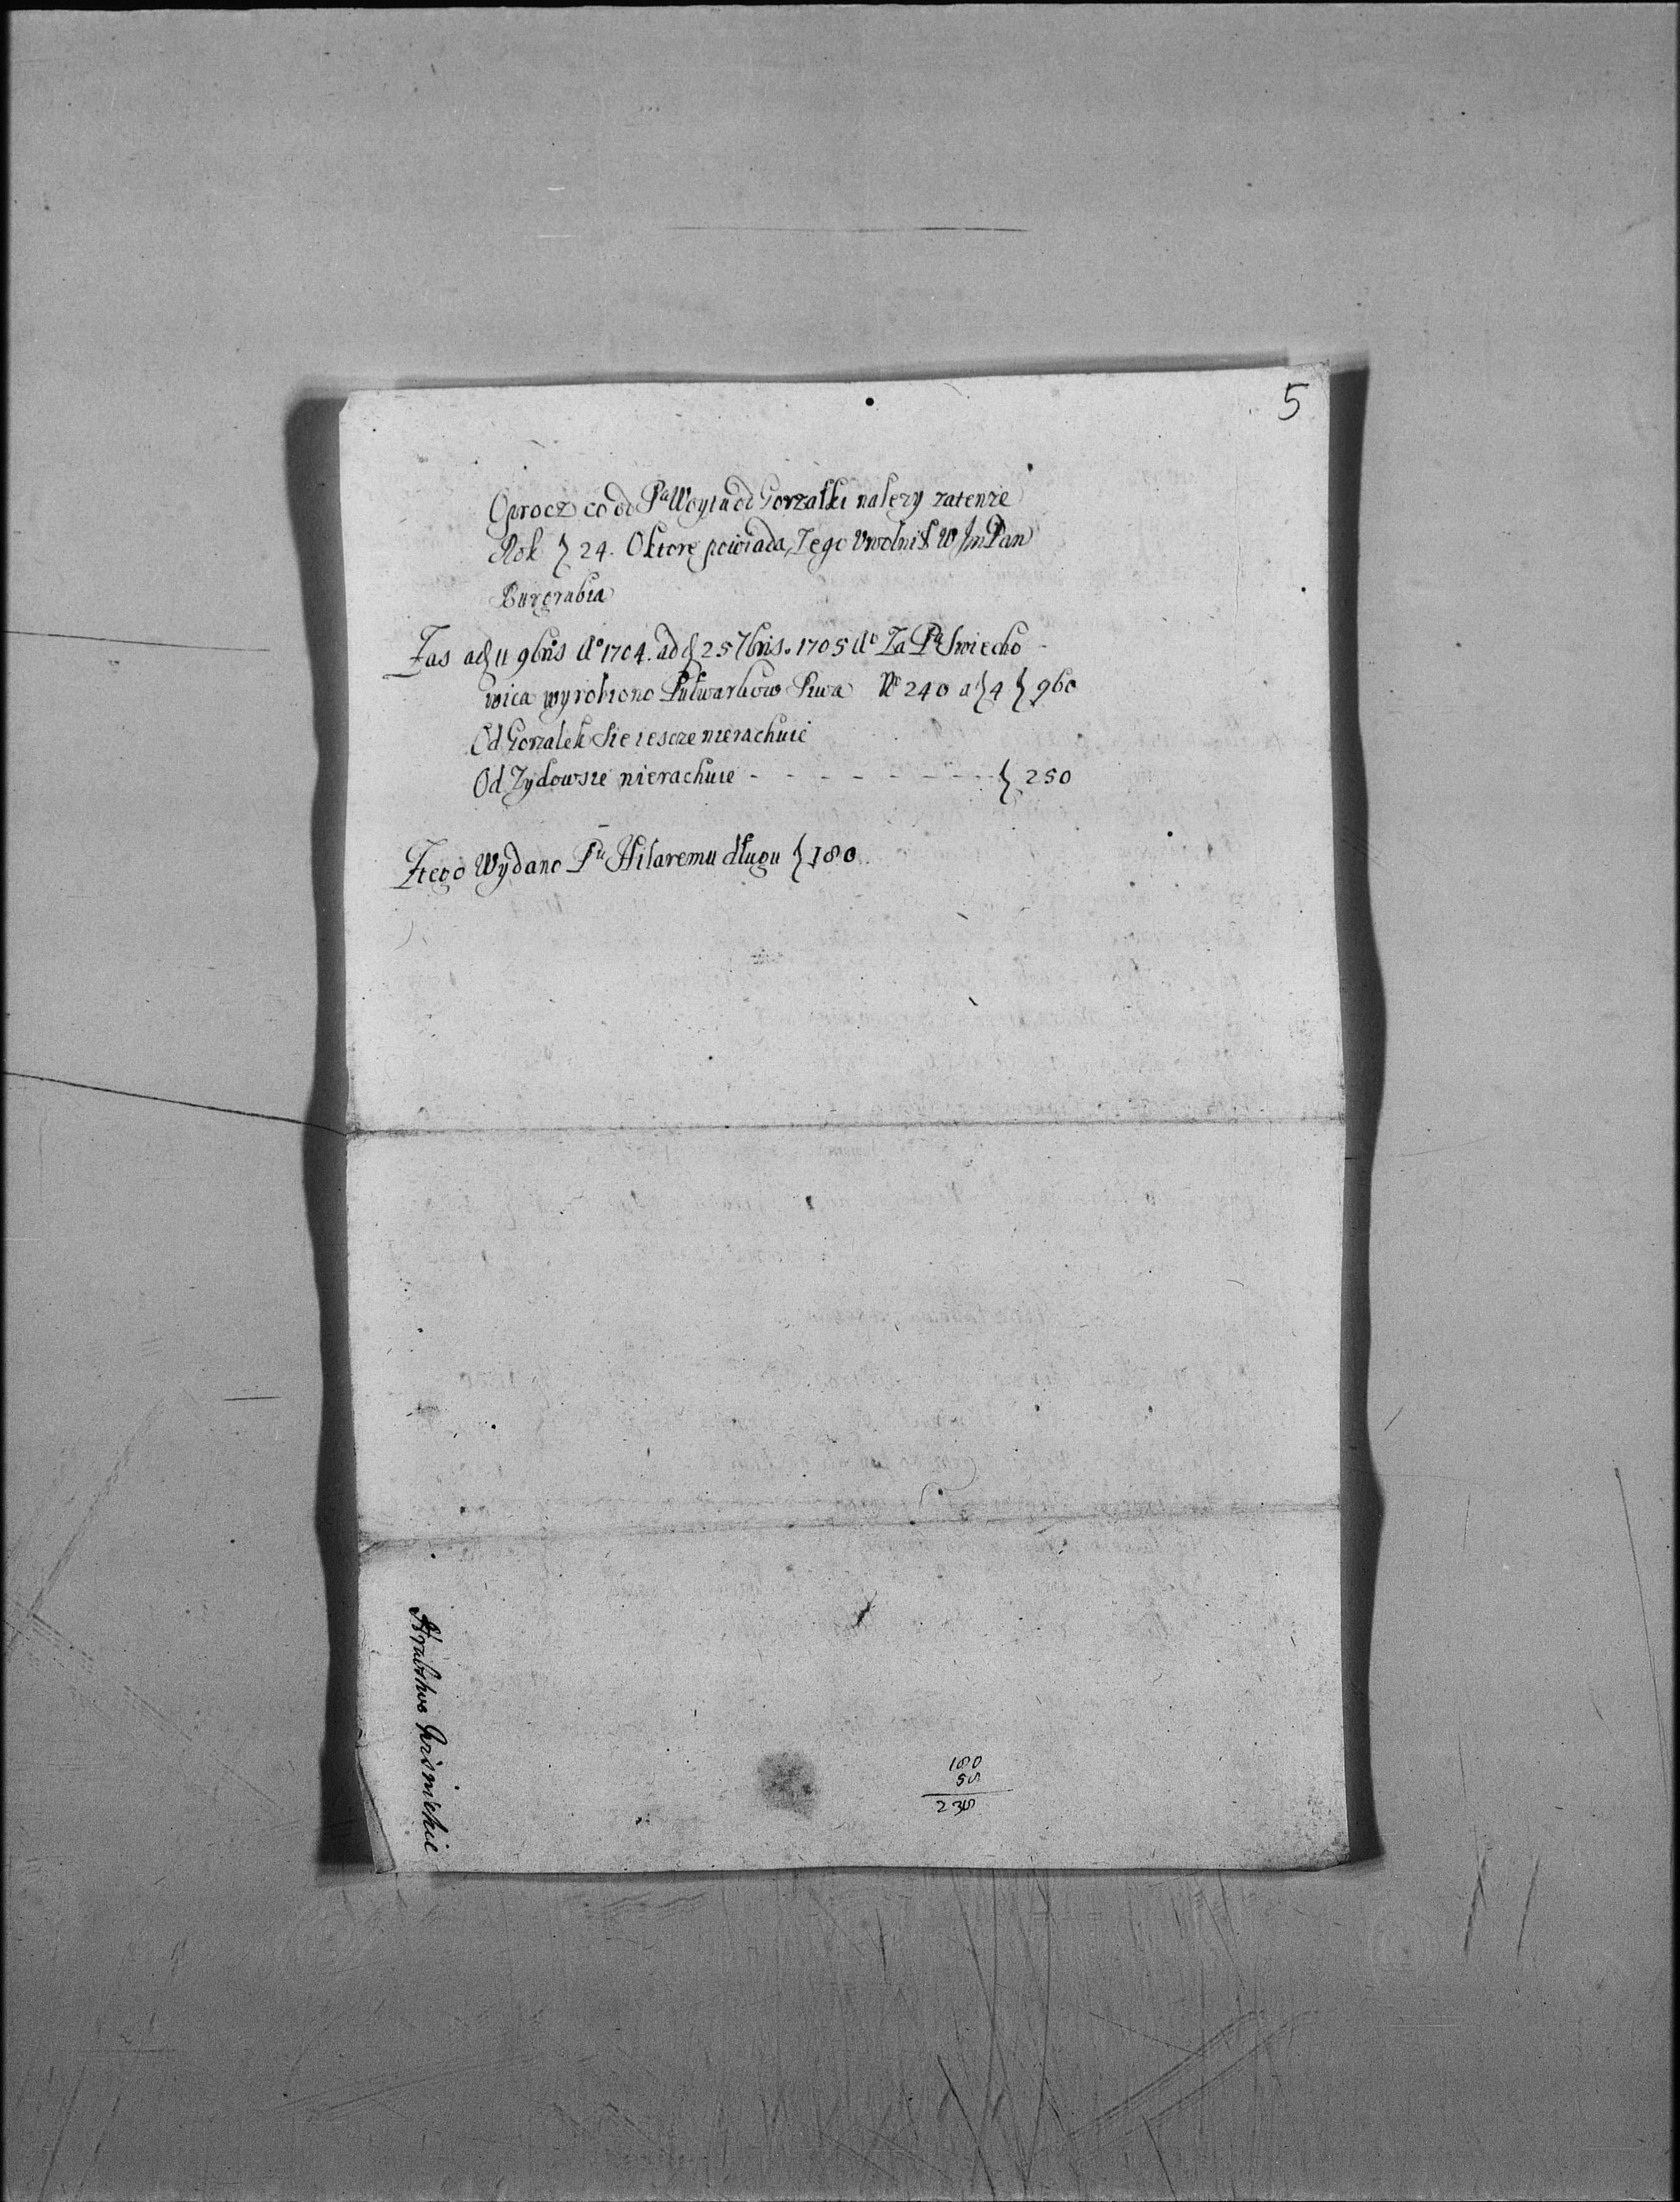 5
Oprocz co od Pa Woyta od Gorzałki nalezy zatenze
Rok } 24. O ktore powiada, Ze go Uwolnił W Jm Pan
Burgrabia
Zas a d 11 9bris Ao 1704. ad d 25 7bris. 1705 Ao Za Pa Swiecho-
wica wyrobiono Pułwarkow Piwa No 240 a } 4 } 960
Od Gorzalek Sie iescze nierachuie
Od Zydow sie nierachuie - - - - - - - - - } 250
Ztego Wydano Pu Hilaremu długu } 180
Hrabstwo Kraśnickie
180
58
238